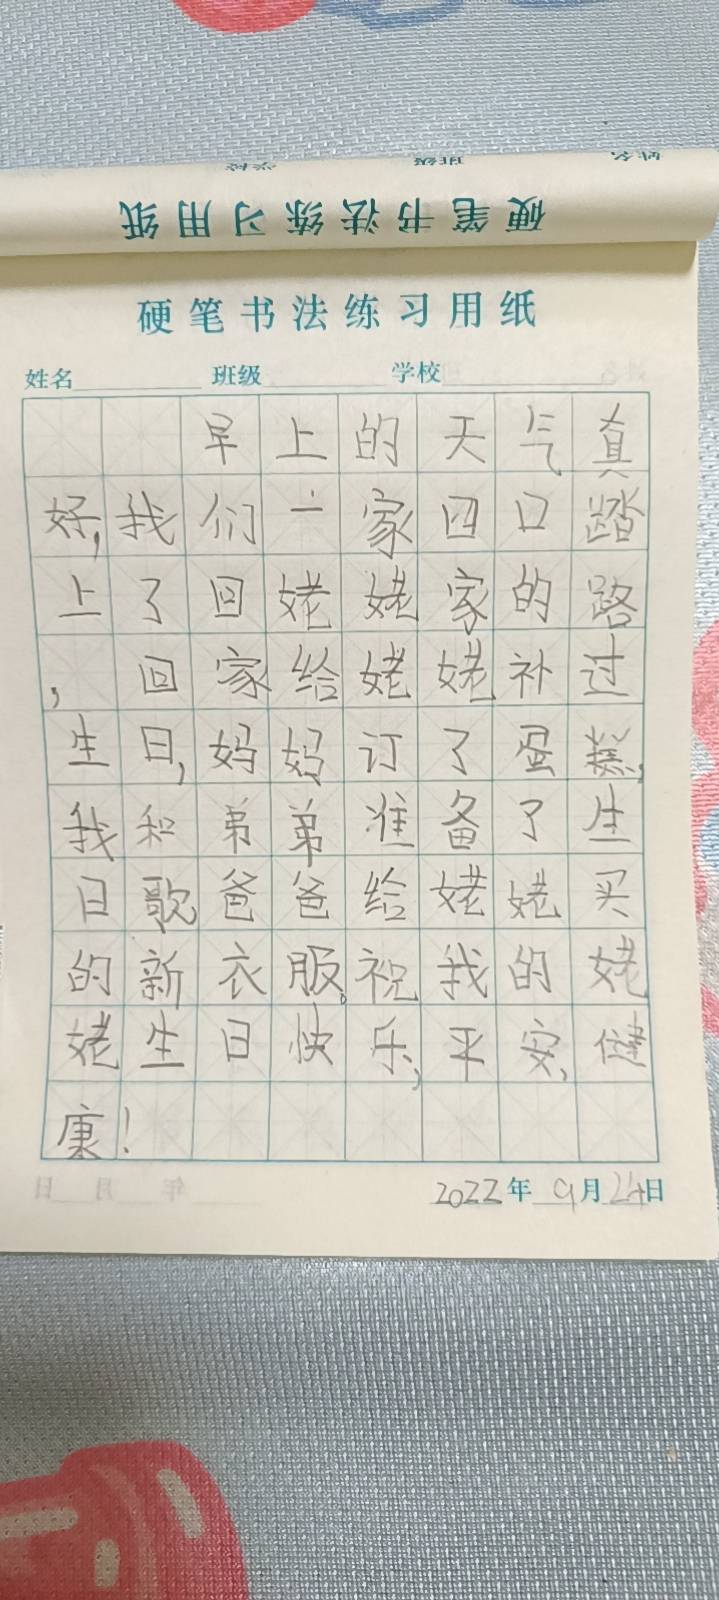 学校 班级 姓名
硬笔书法练习用纸
硬笔书法练习用纸
姓名 班级 学校
早上的天气真
好,我们一家四口踏
上了回姥姥家的路
,回家给姥姥补过
生日,妈妈订了蛋糕,
我和弟弟准备了生
日歌爸爸给姥姥买
的新衣服。祝我的姥
姥生日快乐,平安,健
康!
2022年9月24日